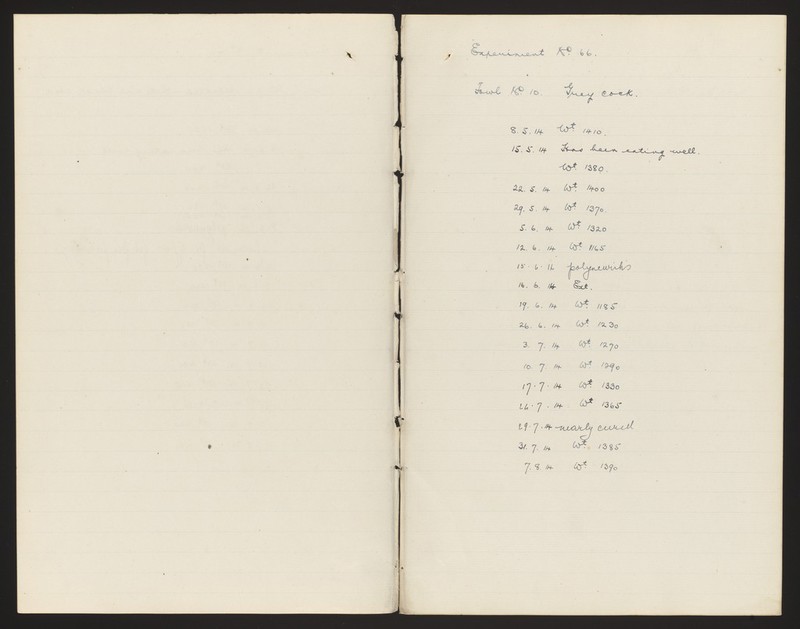 Experiment No 66.
Fowl No 10. Grey cock.
8. 5. 14 Wt 1410.
15. 5. 14 Has been eating well.
Wt. 1380.
22. 5. 14 Wt. 1400
29. 5. 14 Wt. 1370.
5. 6. 14 Wt. 1320
12. 6. 14 Wt. 1165
15. 6. 14 polyneuritis
16. 6. 14 Ext.
19. 6. 14 Wt. 1185
26. 6. 14 Wt. 1230
3. 7. 14 Wt. 1270
10. 7 14 Wt. 1290
17. 7. 14 Wt. 1330
26. 7. 14. Wt 1365
29. 7. 14 nearly cured
31. 7. 14 Wt. 1385
7. 8. 14 Wt. 1390